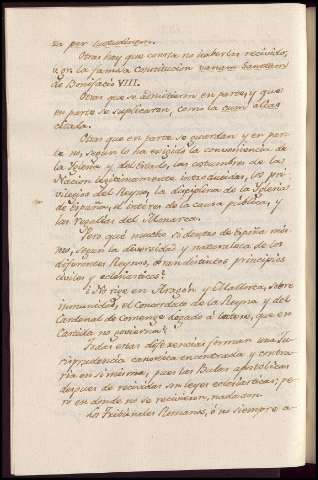 en por
Otras hay que consta no haberlas recivido,
v. gr. la famosa Constitucion Unam Sanctam
de Bonifacio VIII.
Otras que se admitieron en parte, y que
en parte se suplicaron, como la cum alias
citada.
Otras que en parte se guardan y en par-
te no, segun lo ha exigido la conveniencia de
la Iglesia y del Estado, las costumbres de las
Nacion legitimamente introducidas, los pri-
vilegios del Reyno, la disciplina de la Iglesia
de España, el interes de la causa publica, y
las regalias del Monarca.
Pero qué mucho si dentro de España mis-
mo, segun la diversidad y naturaleza de los
diferentes Reynos, obran distintos principios
civiles y eclesiasticos?
¿No rige en Aragón y Mallorca, sobre
inmunidad, el Concordato de la Reyna y del
Cardenal de Comenge legado á latere, que en
Castilla no govierna?
Todas estas diferencias forman una Ju-
risprudencia canonica encontrada y contra-
ria en si misma, pues las Bulas apostolicas
despues de recividas son leyes eclesiasticas; pe-
ro en donde no se recivieron, nada son.
Los Tribunales Romanos, ó no siempre a-